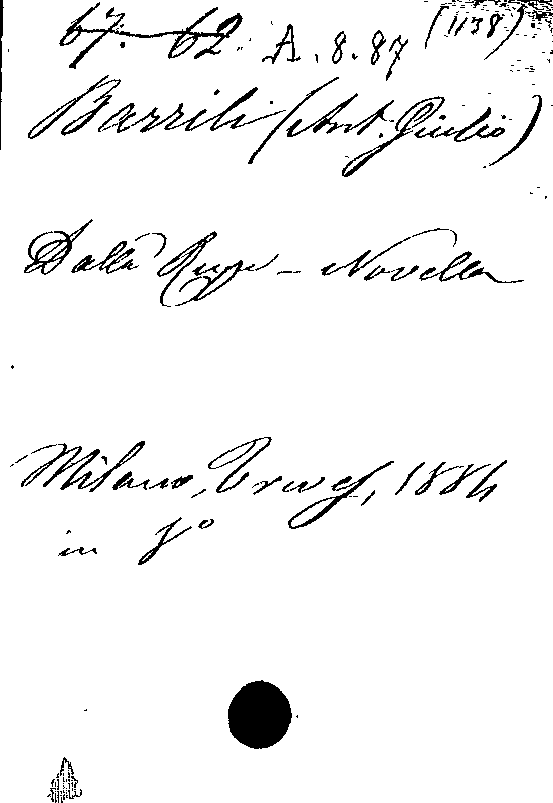 67. 62. A. 8. 87 (1138)
Barrili (Ant. Giulio)
Dalla Rupe - Novella
Milano, Treves, 1884
in 8º